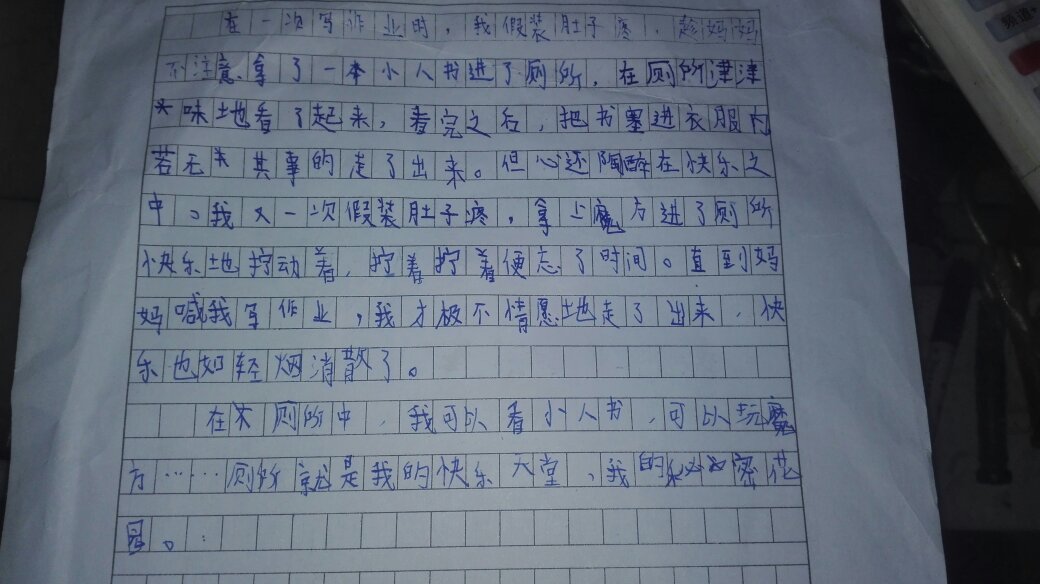 在一次写作业时，我假装肚子疼，趁妈妈
不注意、拿了一本小人书进了厕所，在厕所津津
味地看了起来，看完之后，把书塞进衣服内
若无其事的走了出来。但心还陶醉在快乐之
中。我又一次假装肚子疼，拿上魔方进了厕所
快乐地拧动着，拧着拧着便忘了时间。直到妈
妈喊我写作业，我才极不情愿地走了出来，快
乐也如轻烟消散了。
在厕所中，我可以看小人书，可以玩魔
方……厕所就是我的快乐天堂，我的秘密花
园。
频道+